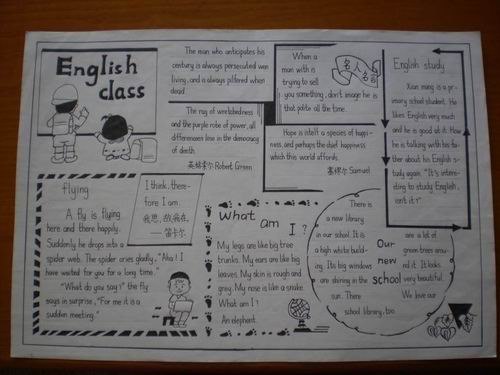 English
class
The man who anticipates his
century is always persecuted wen
living, and is always pilfered when
dead.
The rag of wretchedness
and the purple rote of power, all
differencesn lose in the democracy
of death.
英格索尔 Robert Green
When a
man with is
trying to sell
you something, don't image he is
that polite all the time.
名人名言
Hope is itself a species of happi-
ness, and perhaps the chief happiness
which this world affords.
塞缪尔 Samuel
English study
Xiao ming is a pr-
imary school student. He
likes English very much
and he is good at it. How
he is talking with his fa-
ther about his English s-
tudy again. "It's interes-
ting to study English,
isn't it?"
flying
A fly is flying
here and there happily.
Suddenly he drops into a
spider web. The spider cries gladly, "Aha! I
have waited for you for a long time."
"What do you say?" the fly
says in surprise, "For me it is a
sudden meeting."
I think, there-
fore I am.
我思,故我在.
——笛卡尔
What am I?
My legs are like big tree
trunks. My ears are like big
leaves. My skin is rough and
grey. My nose is like a snake.
What am I?
An elephant.
Our
new
school
There is
a new library
in our school. It is
a high white build-
ing. Its big windows
are shining in the
sun. There
are a lot of
green trees arou-
nd it. It looks
very beautiful.
We love our
school library, too.